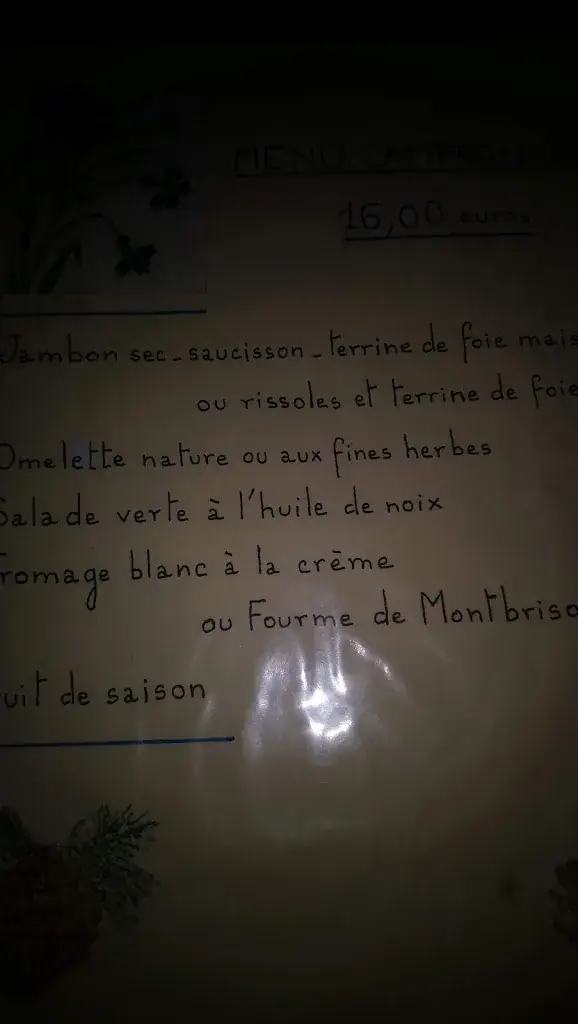 MENU
16,00 euros
Jambon sec - saucisson - terrine de foie mais
ou rissoles et terrine de foie
Omelette nature ou aux fines herbes
Salade verte à l'huile de noix
romage blanc à la crème
ou Fourme de Montbriso
uit de saison